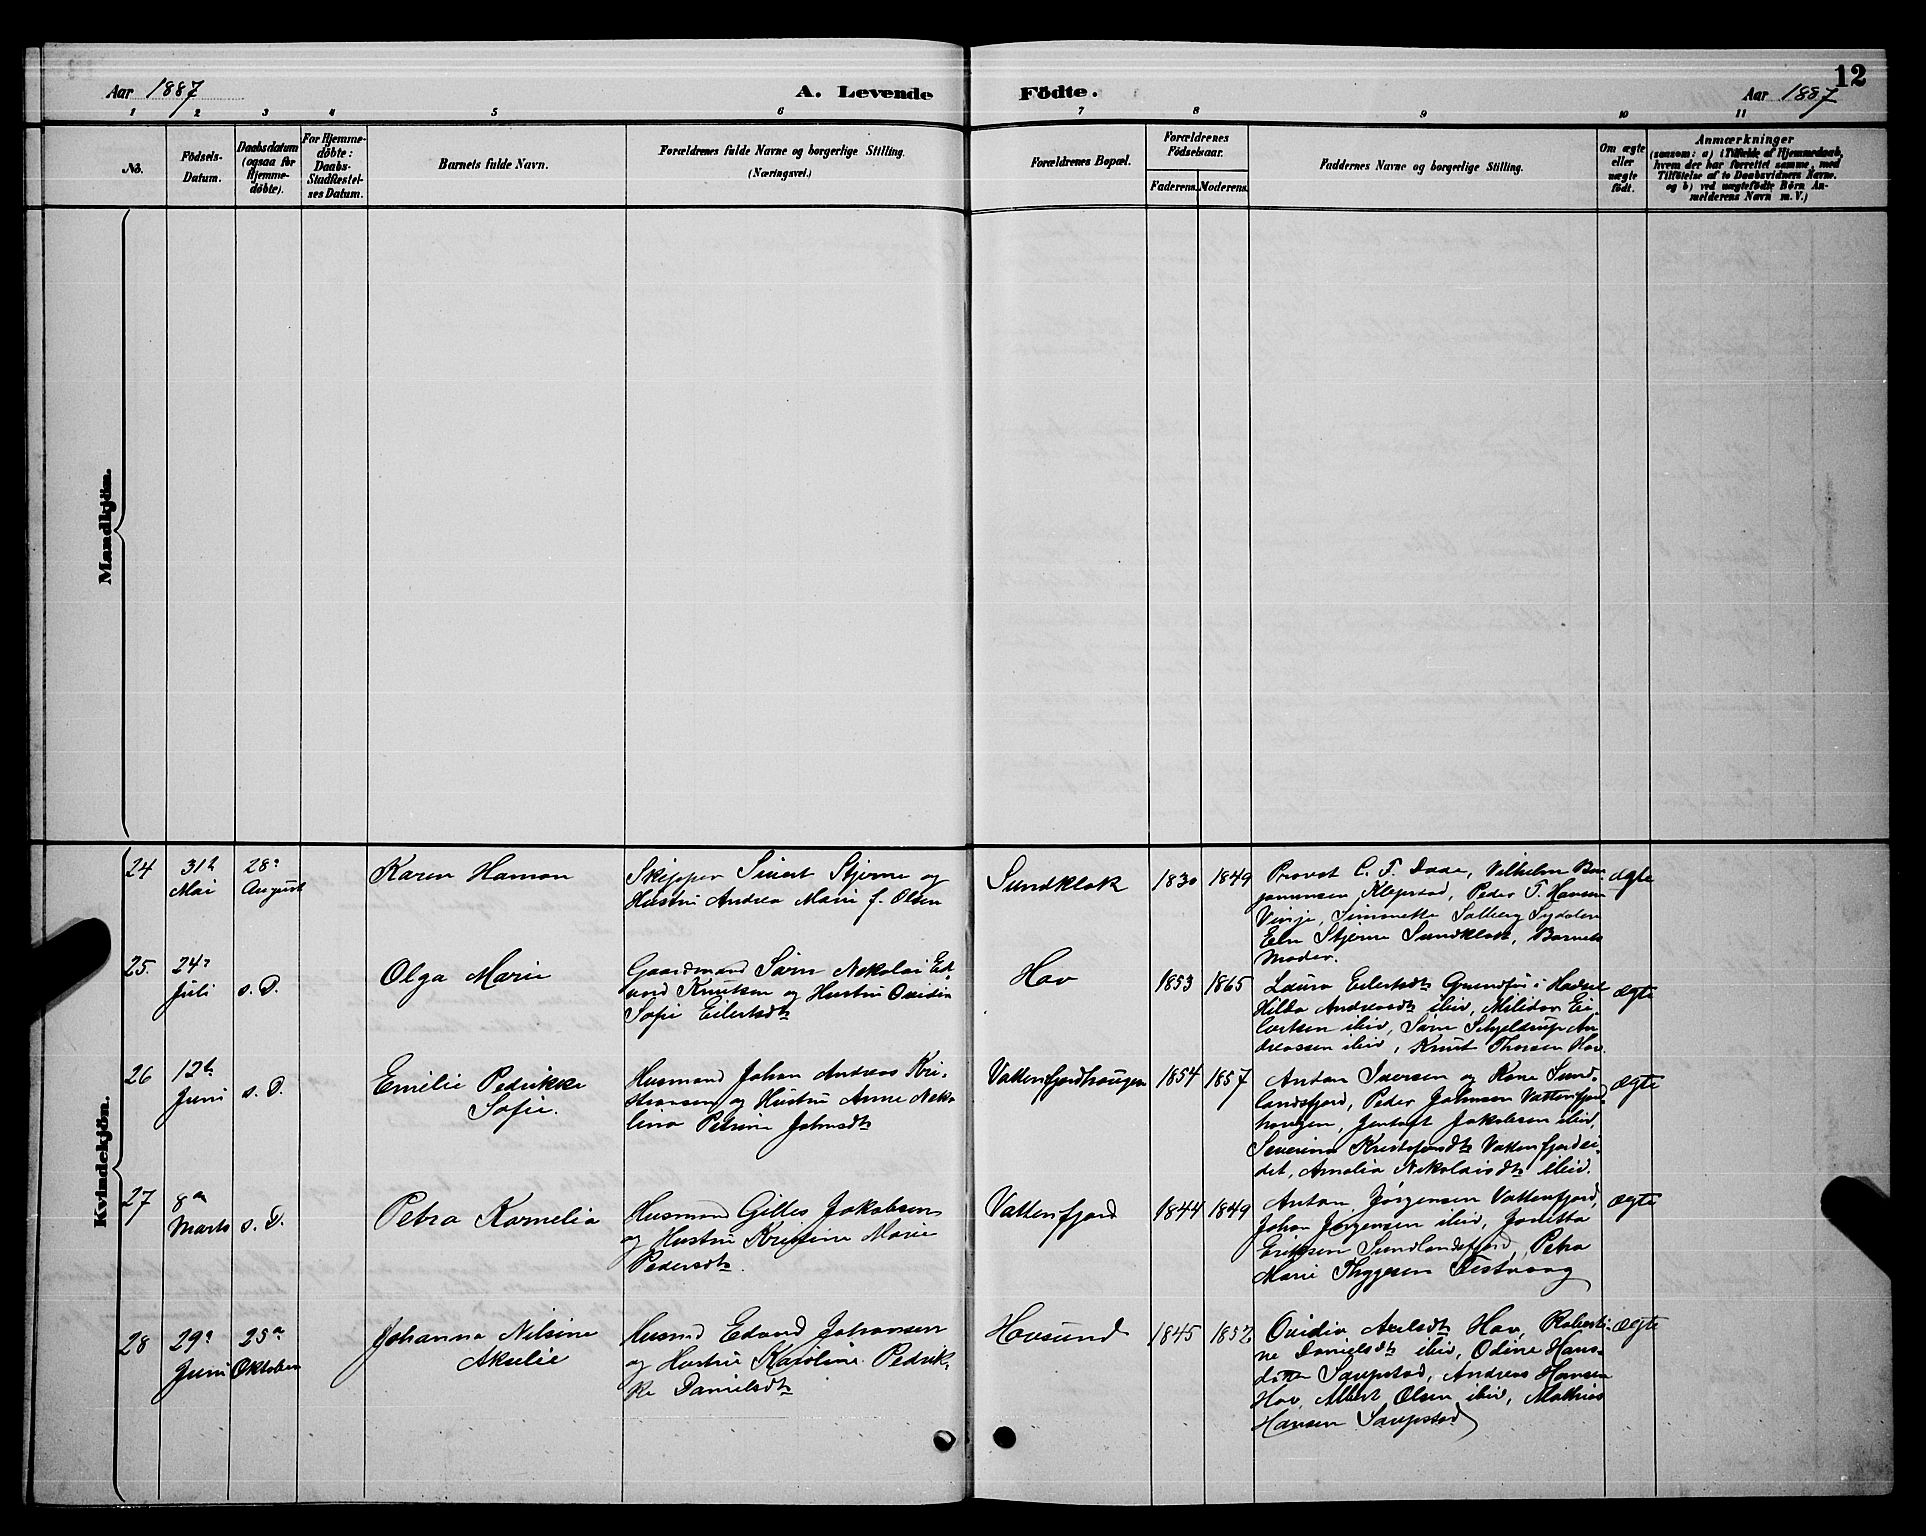 12
Aar 1887
A. Levende Födte.
Aar 1887
1 2 3 4 5 6 7 8 9 10 11
No.
Födsels-
Datum.
Daabsdatum
(ogsaa for
Hjemme-
döbte).
For Hjemme-
döbte:
Daabs-
Stadfæstel-
ses Datum.
Barnets fulde Navn.
Forældrenes fulde Navne og borgerlige Stilling.
(Næringsvei.)
Forældrenes Bopæl.
Forældrenes
Födselsaar.
Faderens. Moderens.
Faddernes Navne og borgerlige Stilling.
Om ægte
eller
uægte
födt.
Anmærkninger
(saasom: a) i Tilfælde af Hjemmedaab,
hvem der har forrettet samme, med
Tilföielse af to Daabsvidners Navne.
og b) ved uægtefödte Börn An-
melderens Navn m. V.)
Mandkjön.
Kvindekjön.
24
31te
Mai
28de
August
Karen Hanson
Skipper Sivert Stjerne og
Hustru Andrea Marie f. Olsen
Sundklak
1830
1849
Provst C. F. Daae, Vilhelm Ben-
jaminsen Klepstad, Peder T. Hansen
Vinje, Simonette Solberg Sydalen
Eln Stjerne Sundklak, Barnets
Moder.
ægte
25.
24de
Juli
s. D.
Olga Marie
Gaardmand Sørn Nekolai Ed-
vard Knutsen og Hustru Ovidia
Sofie Eilertsdtr
Hov
1853
1865
Laura Eilertsdtr Grundfør i Hadsel
Hilda Andreasdtr ibid, Melidor Ei-
lertsen ibid, Sørn Schjeldrup An-
dreassen ibid, Knut Thorsen Hov.
ægte
26
12te
Juni
s. D.
Emelie Pedrikke
Sofie.
Husmand Johan Andreas Kri-
stiansen og Hustru Anne Neko-
lina Petrine Johnsdtr
Vattenfjordhaugen
1854
1857
Anton Iversen og Kone Sund-
landsfjord, Peder Johnsen Vattenfjord
haugen, Jentoft Jakobsen ibid,
Severine Kristofersdtr Vattenfjordei-
det, Amalia Nekolaisdtr ibid.
ægte
27
8de
Marts
s. D.
Petra Kornelia
Husmand Gilles Jakobsen
og Hustru Kristine Marie
Pedersdtr.
Vattenfjord
1844
1849
Anton Jørgensen Vattenfjord,
Johan Jørgensen ibid, Jorletta
Eriksen Sundlandsfjord, Petra
Marie Thygesen Festvaag
ægte
28
29de
Juni
23de
Oktober
Johanna Nilsine
Akselie
Husmd Edvard Johansen
og Hustru Karoline Pedrik-
ke Danielsdtr
Hovsund
1845
1852
Ovidia Axelsdtr Hov, Roberti-
ne Danielsdtr ibid, Odine Hans-
datter Saupstad, Andreas Hansen
Hov, Albert Olsen ibid, Mathias
Hansen Saupstad
ægte